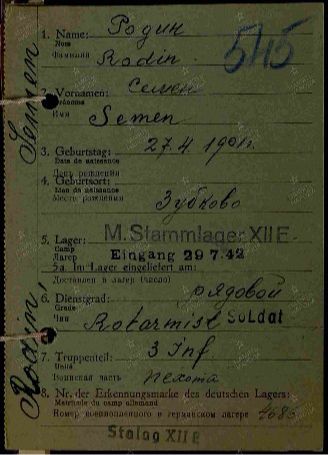 1. Name: Родин
Nom
Фамилия Rodin
515
2. Vornamen: Семен
Prénoms
Имя Semen
3. Geburtstag: 27.4.
Date de naissance
День рождения
4. Geburtsort: Зубково
Lieu de naissance
Место рождения
5. Lager: M. Stammlager XII E
Camp
Лагерь Eingang 29 7.42
5a. Im Lager eingeliefert am:
Доставлен в лагерь (число)
6. Dienstgrad: рядовой
Grade
Чин Rotarmist Soldat
7. Truppenteil: 3 Inf
Unité
Воинская часть пехота
8. Nr. der Erkennungsmarke des deutschen Lagers:
Matricule du camp allemand
Номер военнопленного в германском лагере
Stalag XII E
Rodin, Semen